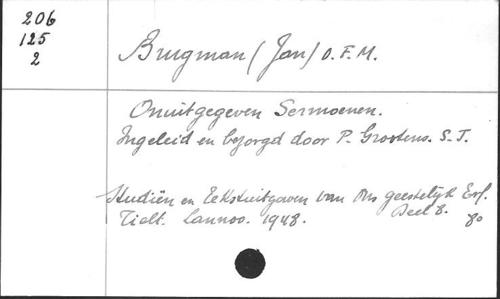 206
125
2
Brugman (Jan) O.F.M.
Onuitgegeven Sermoenen.
Ingeleid en bezorgd door P. Grootens. S.J.
Studiën en Tekstuitgaven van Ons geestelijk Erf.
Deel 8.
Tielt. Lannoo. 1948. 8o